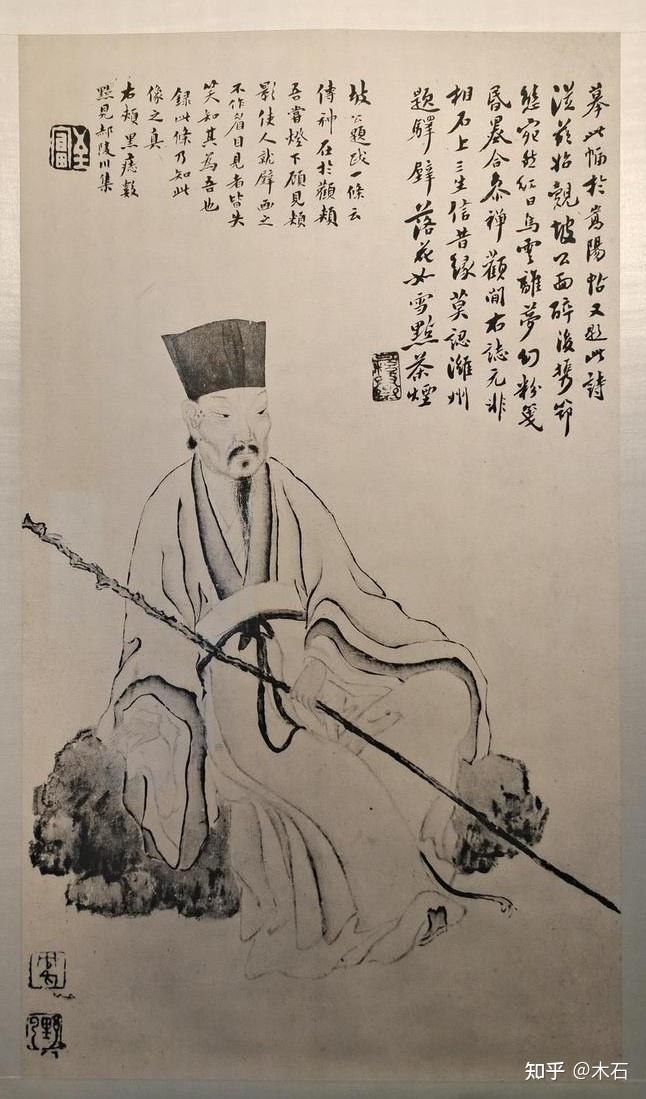 摹此幅於嵩陽帖又題此詩
從茲始覿坡公面醉後攜笻
態宛然紅日烏雲離夢幻粉箋
昏墨合參禪顴間右誌元非
相石上三生信昔緣莫認濰州
題驛壁落花如雪點茶煙
坡公題跋一條云
傳神在於顴頰
吾嘗燈下顧見頰
影使人就壁画之
不作眉目見者皆失
笑知其為吾也
録此條乃知此
像之真
右頰黑痣數
點見郝陵川集
知乎 @木石